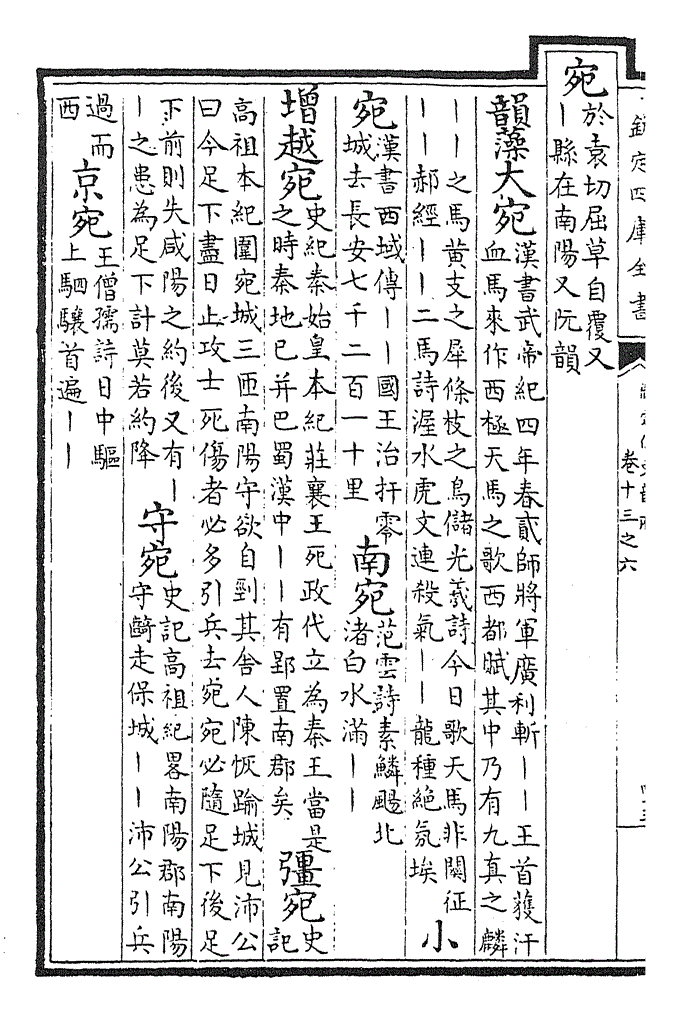 欽定四庫全書
卷十三之六
宛
於袁切屈草自覆又
丨縣在南陽又阮韻
韻藻大宛
漢書武帝紀四年春貳師將軍廣利斬丨丨王首獲汗
血馬來作西極天馬之歌西都賦其中乃有九真之麟
丨丨之馬黃支之犀條枝之鳥儲光羲詩今日歌天馬非關征
丨丨郝經丨丨二馬詩渥水虎文連殺氣丨丨龍種絕氛埃
小宛
漢書西域傳丨丨國王治扜零
城去長安七千二百一十里
南宛
范雲詩素鱗颺北
渚白水滿丨丨
增越宛
史紀秦始皇本紀莊襄王死政代立為秦王當是
之時秦地已并巴蜀漢中丨丨有郢置南郡矣
彊宛
史
記
高祖本紀圍宛城三匝南陽守欲自剄其舍人陳恢踰城見沛公
曰今足下盡日止攻士死傷者必多引兵去宛宛必隨足下後足
下前則失咸陽之約後又有丨
丨之患為足下計莫若約降
守宛
史記高祖紀畧南陽郡南陽
守齮走保城丨丨沛公引兵
過而
西
京宛
王僧孺詩日中驅
上駟驤首遍丨丨